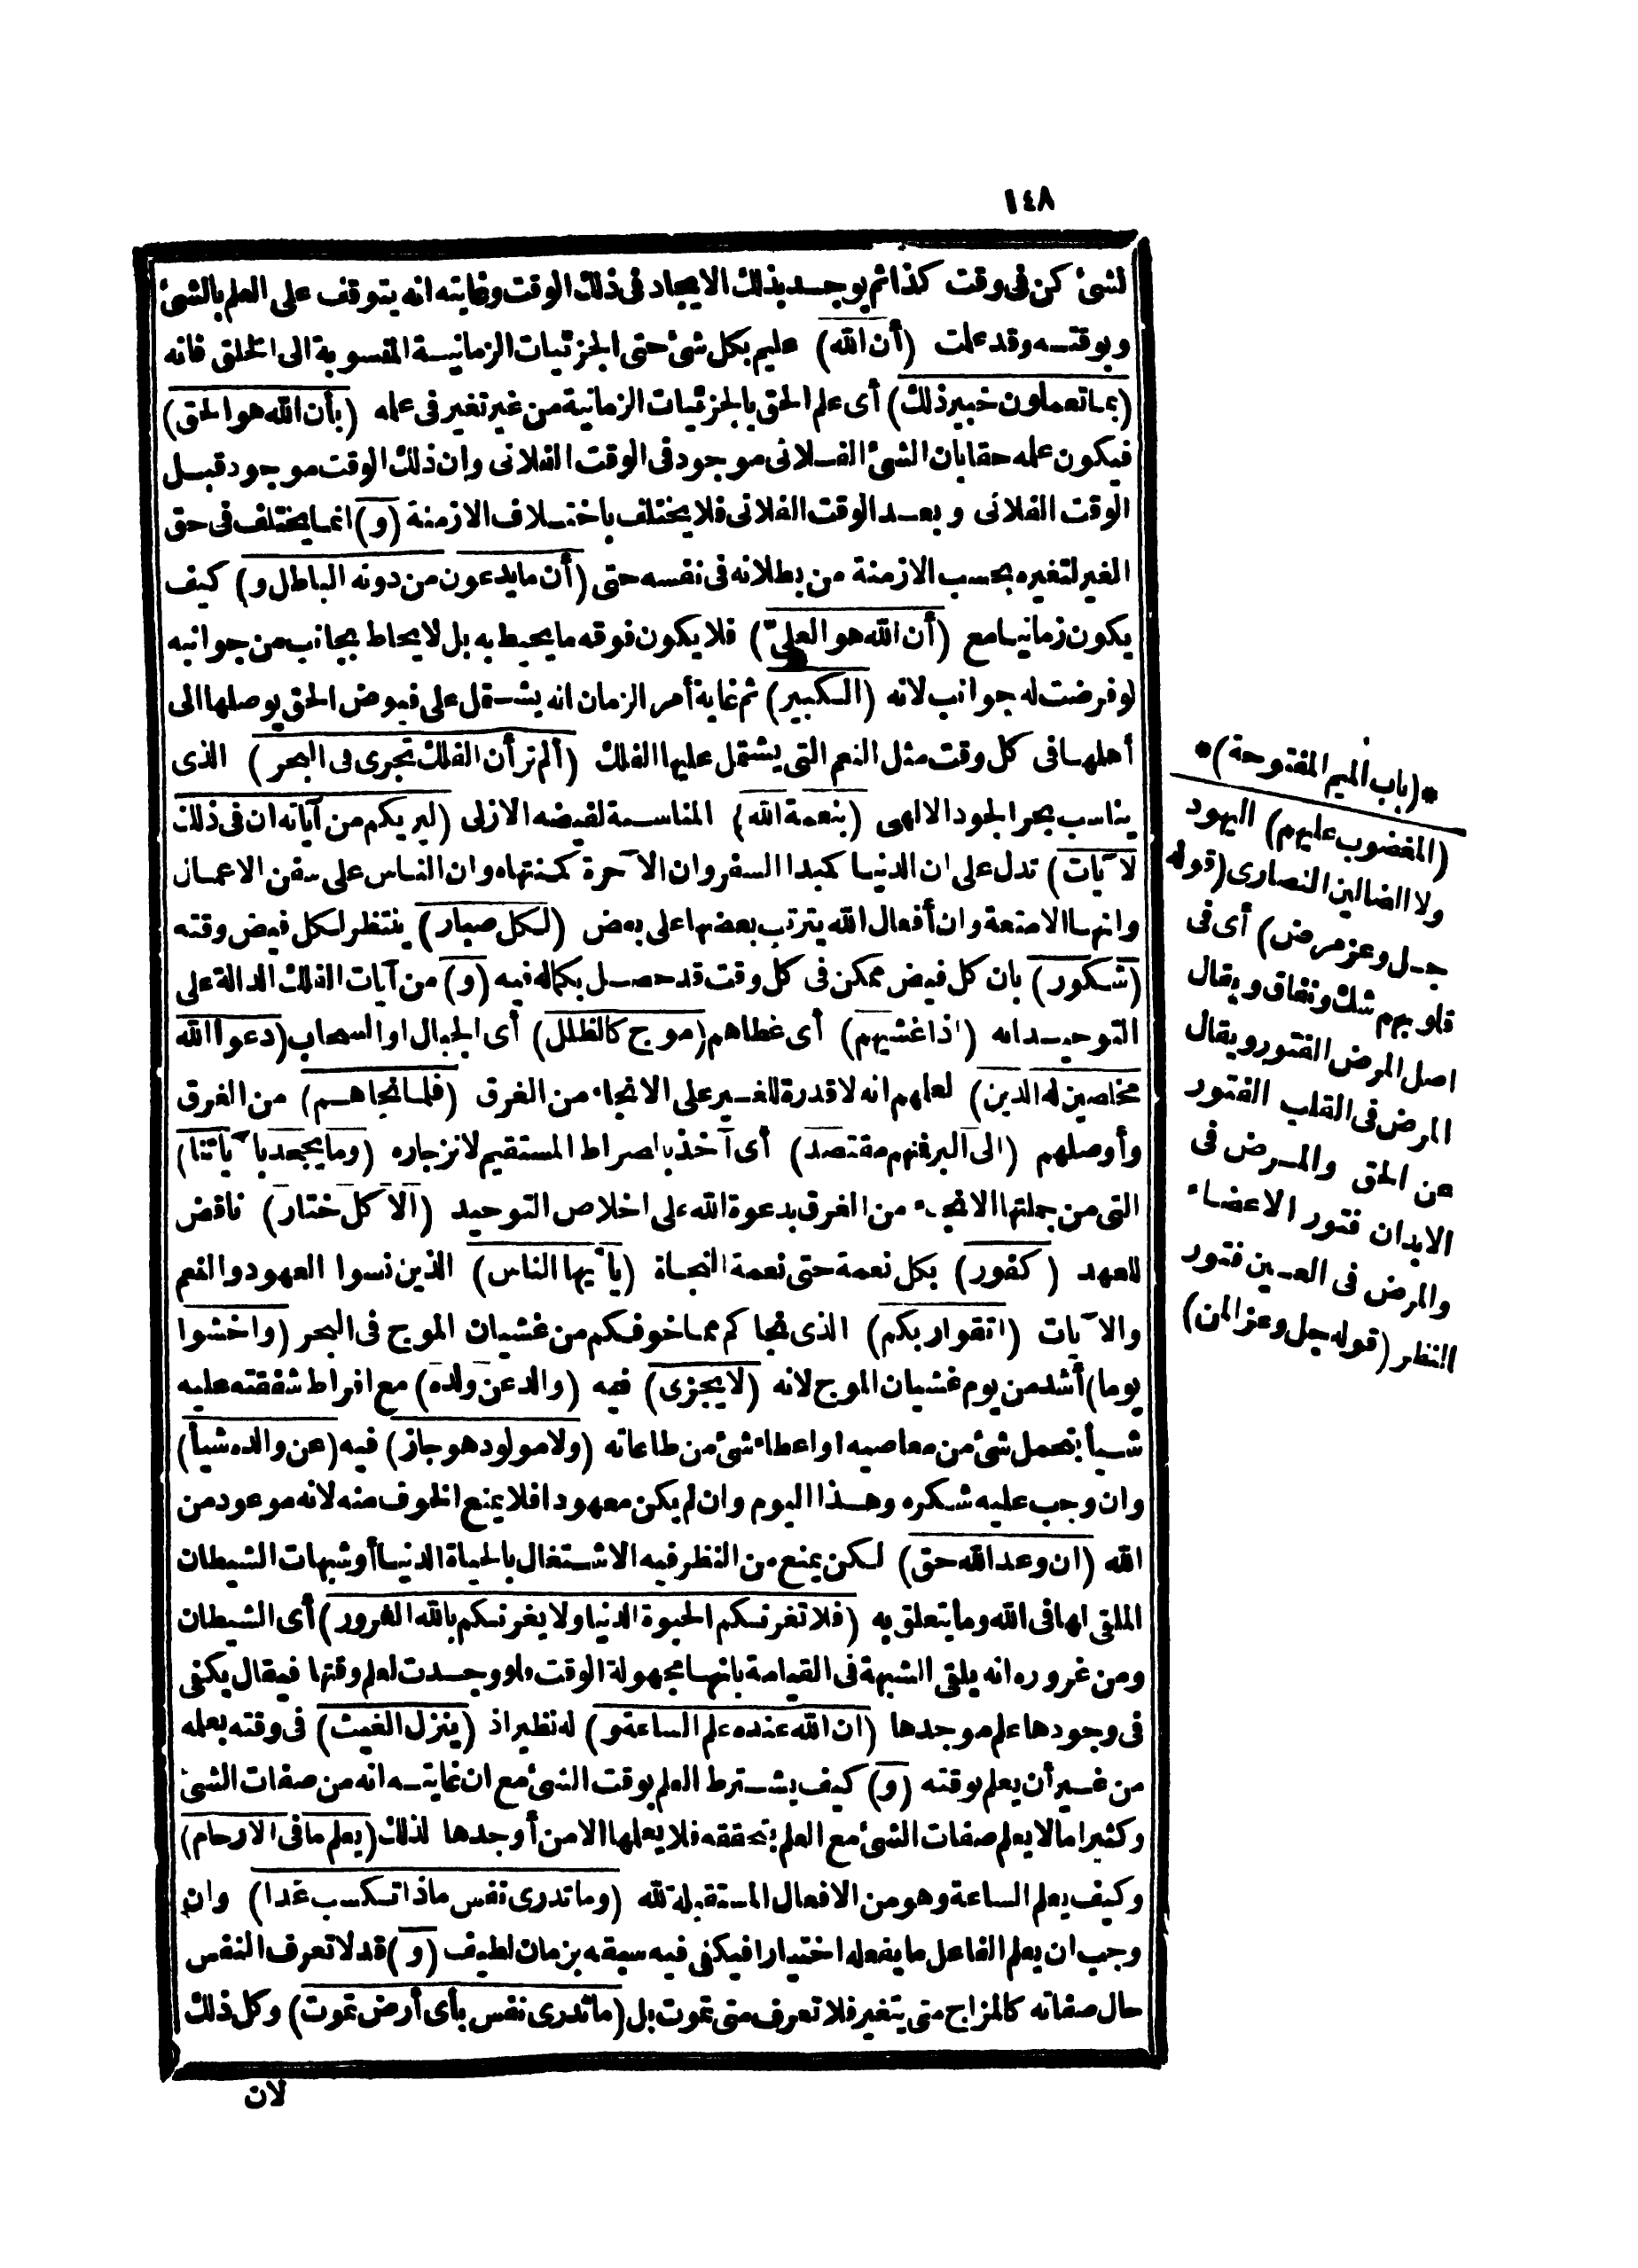 ١٤٨
لشئ كن فى وقت كذا ثم يوجد بذلك الايجاد فى ذلك الوقت وغايته انه يتوقف على العلم بالشئ
وبوقته وقد علمت (أن الله) عليم بكل شئ حتى الجزئيات الزمانية المنسوبة الى الخلق فانه
(بما تعملون خبير ذلك) أى علم الحق بالجزئيات الزمانية من غير تغير فى علمه (بأن الله هو الحق)
فيكون علمه حقا بان الشئ الفلانى موجود فى الوقت الفلانى وان ذلك الوقت موجود قبل
الوقت الفلانى وبعد الوقت الفلانى فلا يختلف باختلاف الازمنة (و) انما يختلف فى حق
الغير لتغيره بحسب الازمنة من بطلانه فى نفسه حتى (أن ما يدعون من دونه الباطل و) كيف
يكون زمانيا مع (أن الله هو العلىّ) فلا يكون فوقه ما يحيط به بل لا يحاط بجانب من جوانبه
لو فرضت له جوانب لانه (الكبير) ثم غاية أمر الزمان انه يشتمل على فيوض الحق يوصلها الى
أهلها فى كل وقت مثل النعم التى يشتمل عليها الفلك (ألم تر أن الفلك تجرى فى البحر) الذى
يناسب بحر الجود الالهى (بنعمة الله) المناسبة لفيضه الازلى (ليريكم من آياته ان فى ذلك
لآيات) تدل على ان الدنيا كمبدا السفر وان الآخرة كمنتهاه وان الناس على سفن الاعمال
وانها الامتعة وان أفعال الله يترتب بعضها على بعض (لكل صبار) ينتظر لكل فيض وقته
(شكور) بان كل فيض ممكن فى كل وقت قد حصل بكماله فيه (و) من آيات الفلك الدالة على
التوحيد انه (اذا غشيهم) أى غطاهم (موج كالظلل) أى الجبال او السحاب (دعوا الله
مخلصين له الدين) لعلهم انه لا قدرة للغير على الانجاء من الغرق (فلما نجاهم) من الغرق
وأوصلهم (الى البر فمنهم مقتصد) أى آخذ بالصراط المستقيم لانزجاره (وما يجحد بآياتنا)
التى من جملتها الانجاء من الغرق بدعوة الله على اخلاص التوحيد (الا كل ختار) ناقض
للعهد (كفور) بكل نعمة حتى نعمة النجاة (يا أيها الناس) الذين نسوا العهود والنعم
والآيات (اتقوا ربكم) الذى نجاكم مما خوفكم من غشيان الموج فى البحر (واخشوا
يوما) أشد من يوم غشيان الموج لانه (لا يجزى) فيه (والد عن ولده) مع افراط شفقته عليه
شيأ بتحمل شئ من معاصيه او اعطاء شئ من طاعاته (ولا مولود هو جاز) فيه (عن والده شيأ)
وان وجب عليه شكره وهذا اليوم وان لم يكن معهودا فلا يمنع الخوف منه لانه موعود من
الله (ان وعد الله حق) لكن يمنع من النظر فيه الاشتغال بالحياة الدنيا أو شبهات الشيطان
الملقى لها فى الله وما يتعلق به (فلا تغرنكم الحيوة الدنيا ولا يغرنكم بالله الغرور) أى الشيطان
ومن غروره انه يلقى الشبهة فى القيامة بانها مجهولة الوقت ولو وجدت لعلم وقتها فيقال يكفى
فى وجودها علم موجدها (ان الله عنده علم الساعة و) له نظير اذ (ينزل الغيث) فى وقته بعلمه
من غير أن يعلم بوقته (و) كيف يشترط العلم بوقت الشئ مع ان غايته انه من صفات الشئ
وكثيرا ما لا يعلم صفات الشئ مع العلم بتحققه فلا يعلمها الا من أوجدها لذلك (يعلم ما فى الارحام)
وكيف يعلم الساعة وهو من الافعال المستقبلة لله (وما تدرى نفس ماذا تكسب غدا) وان
وجب ان يعلم الفاعل ما يفعله اختيارا فيكفى فيه سبقه بزمان لطيف (و) قد لا تعرف النفس
حال صفاته كالمزاج متى يتغير فلا تعرف متى تموت بل (ما تدرى نفس بأى أرض تموت) وكل ذلك
لان
*(باب الميم المفتوحة)*
(المغضوب عليهم) اليهود
ولا الضالين النصارى (قوله
جل وعز مرض) أى فى
قلوبهم شك ونفاق ويقال
اصل المرض الفتور ويقال
المرض فى القلب الفتور
عن الحق والمرض فى
الابدان فتور الاعضاء
والمرض فى العين فتور
النظر (قوله جل وعز المن)